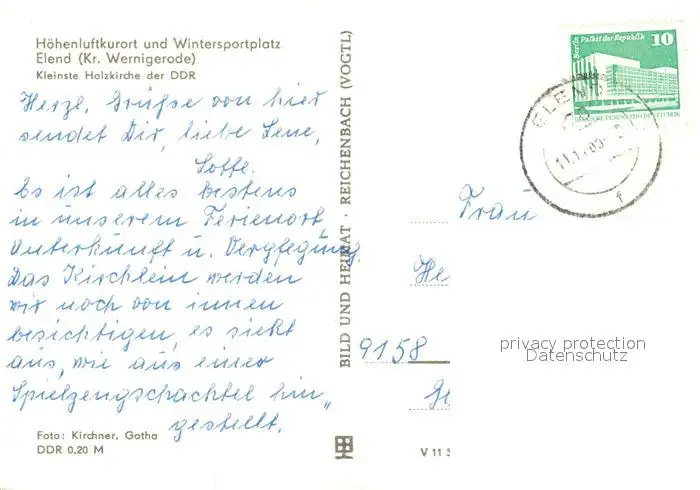 Höhenluftkurort und Wintersportplatz
Elend (Kr. Wernigerode)
Kleinste Holzkirche der DDR
Herzl. Grüße von hier
sendet Dir, liebe Lene,
Lotte.
Es ist alles bestens
in unserem Ferienort,
Unterkunft u. Verpflegung.
Das Kirchlein werden
wir noch von innen
besichtigen, es sieht
aus, wie aus einer
Spielzeugschachtel hin„
gestellt.
Foto: Kirchner, Gotha
DDR 0,20 M
BILD UND HEIMAT · REICHENBACH (VOGTL)
V 11 3
Berlin Palast der Republik
10
DEUTSCHE DEMOKRATISCHE REPUBLIK
ELEND
f
Frau
He
9158
privacy protection
Datenschutz